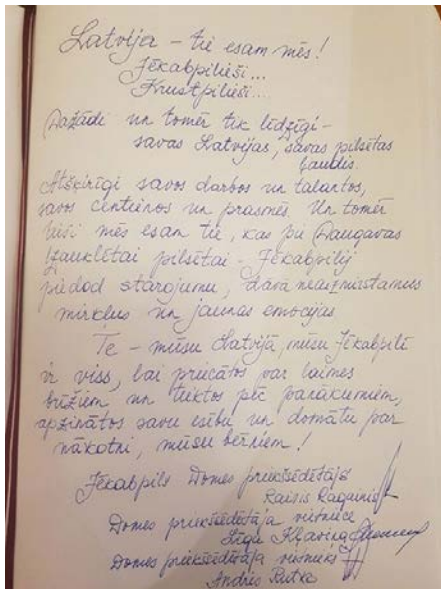 Latvija – tie esam mēs!
Jēkabpilieši...
Krustpilieši...
Dažādi un tomēr tik līdzīgi –
savas Latvijas, savas pilsētas
ļaudis.
Atšķirīgi savos darbos un talantos,
savos centienos un prasmēs. Un tomēr
visi mēs esam tie, kas pie Daugavas
izauklētai pilsētai – Jēkabpilij
piedod starojumu, dāvā neaizmirstamus
mirkļus un jaunas emocijas.
Te – mūsu Latvijā, mūsu Jēkabpilī
ir viss, lai priecātos par laimes
brīžiem un tiektos pēc panākumiem,
apzinātos savu esību un domātu par
nākotni, mūsu bērniem!
Jēkabpils Domes priekšsēdētājs
Raivis Ragainis
Domes priekšsēdētāja vietniece
Līga Kļaviņa
Domes priekšsēdētāja vietnieks
Andris Rutka